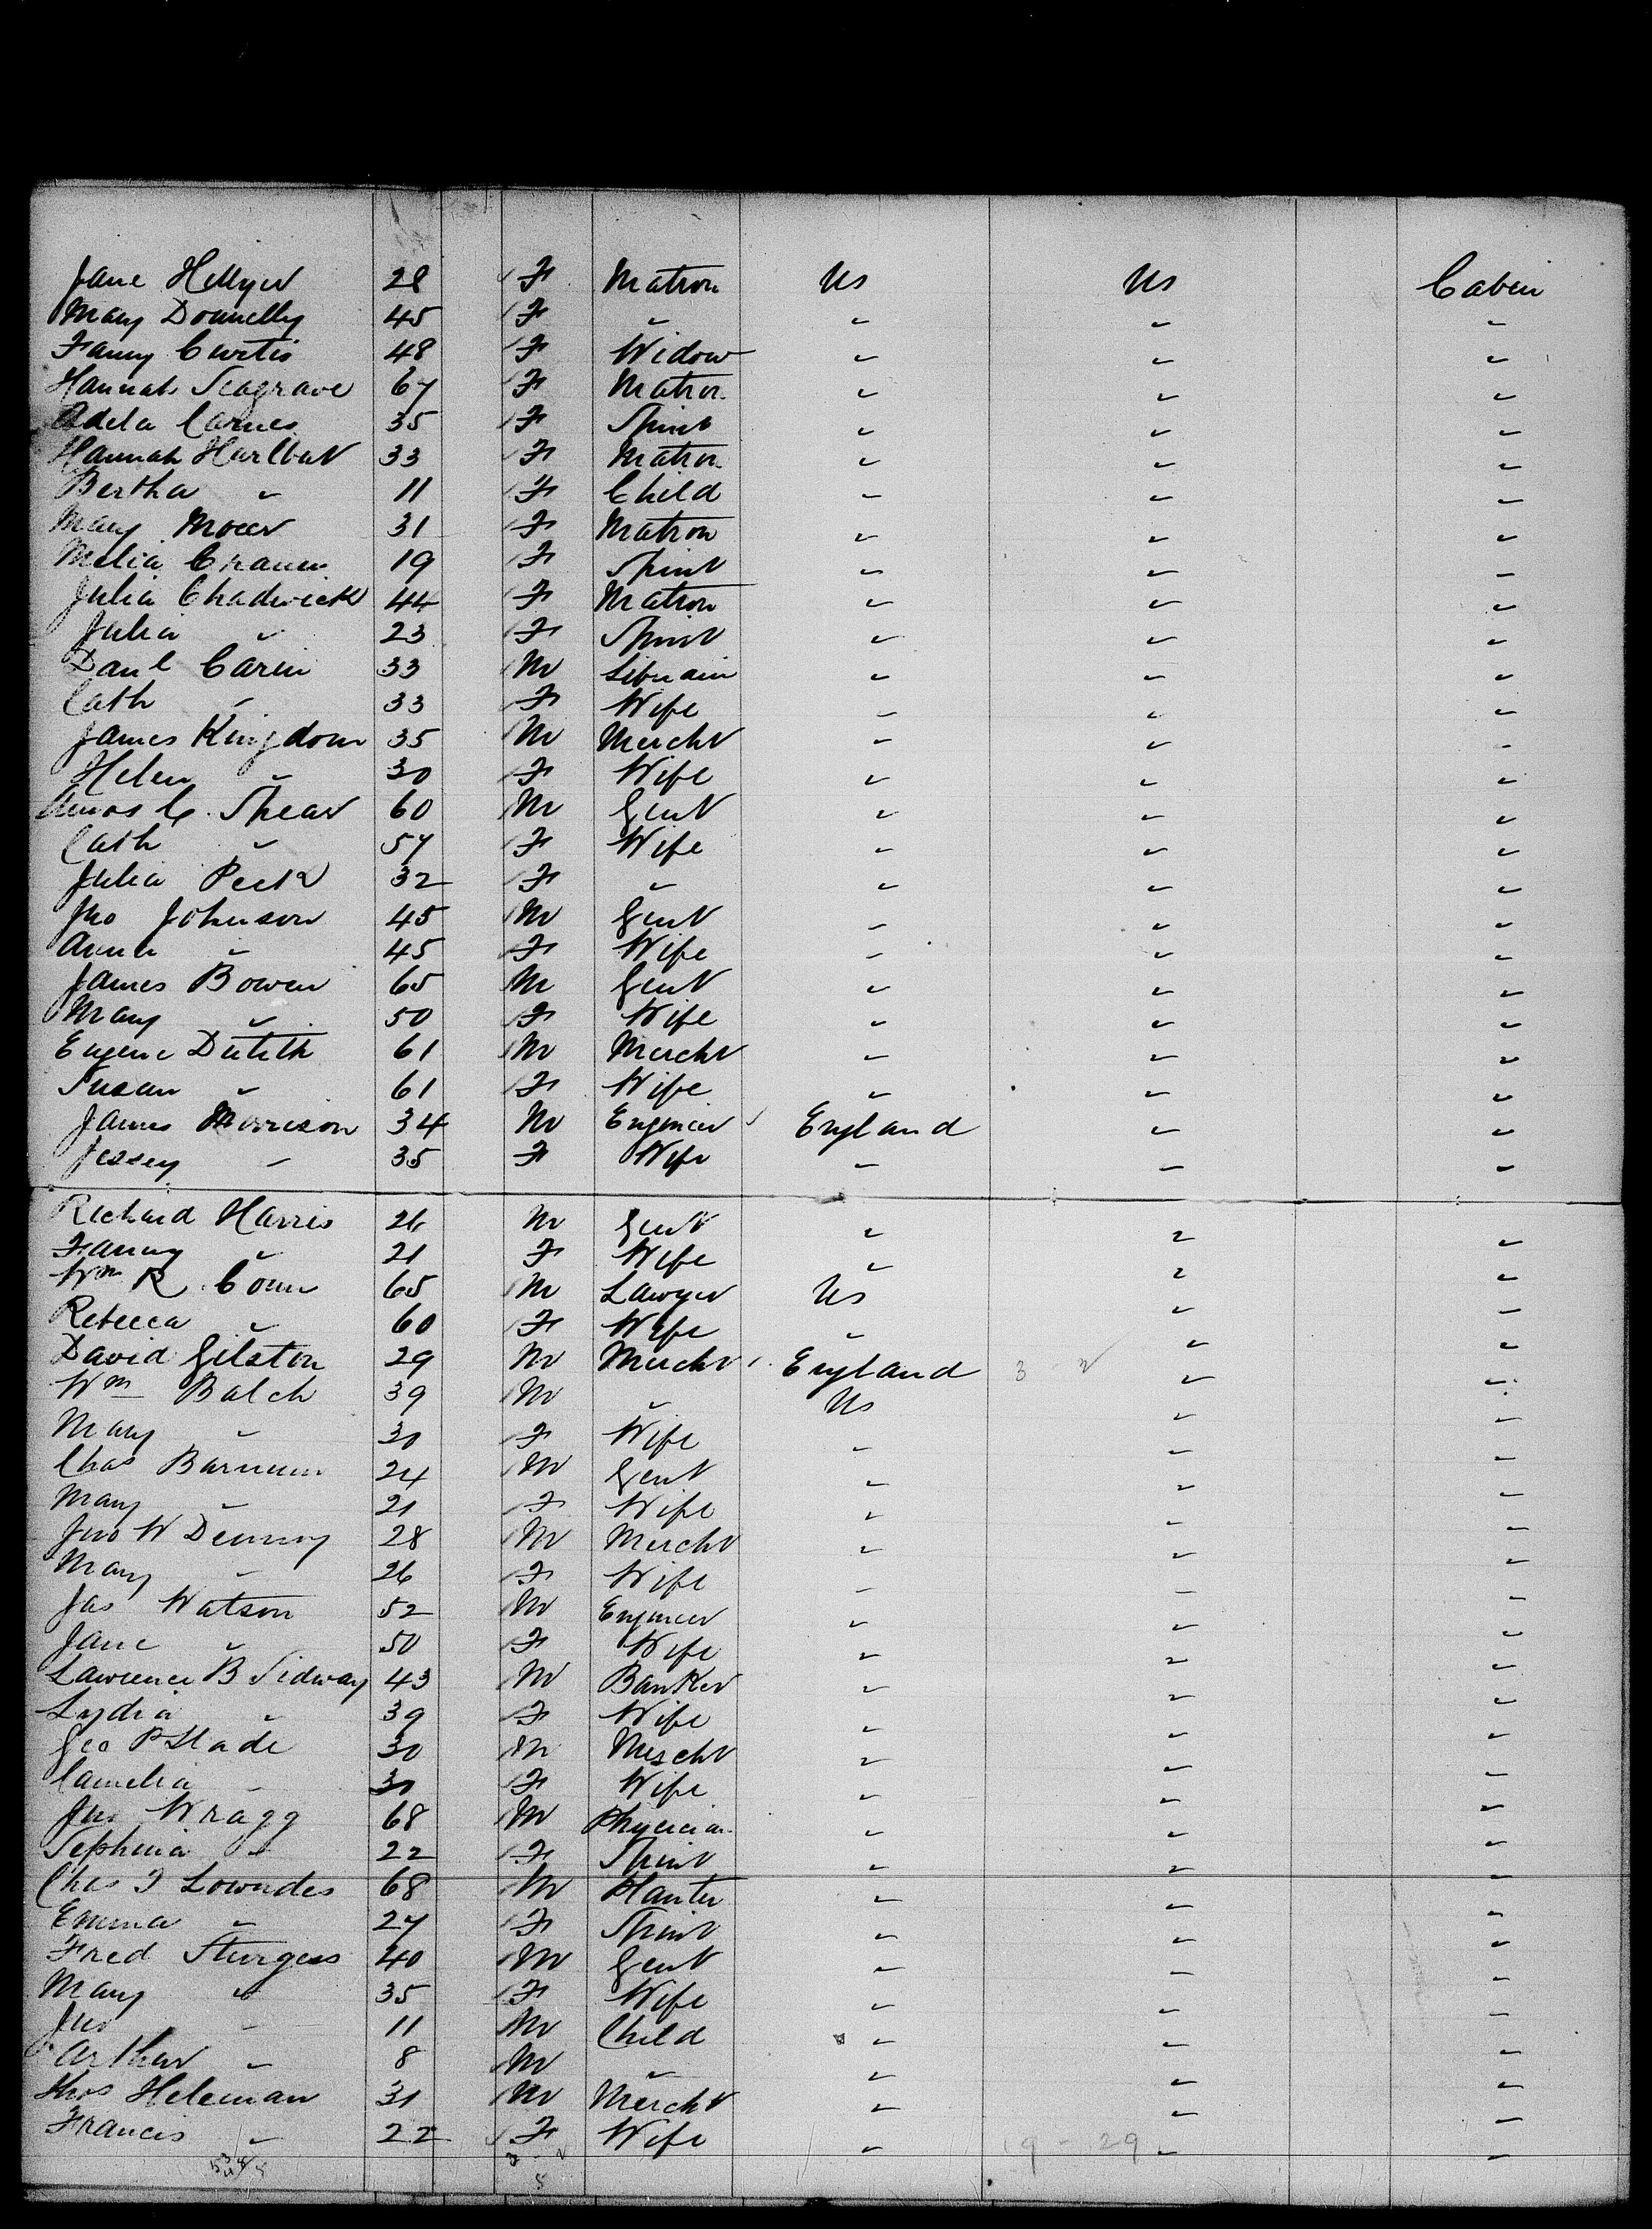 Jane Hellyer 28 F Matron US US Cabin
Mary Donnelly 45 F " " " "
Fanny Curtis 48 F Widow " " "
Hannah Seagrave 67 F Matron " " "
Adela Carnes 35 F Spinst " " "
Hannah Hurlbut 33 F Matron " " "
Bertha " 11 F Child " " "
Mary 31 F Matron " " "
Melia 19 F Spinst " " "
Julia Chadwick 44 F Matron " " "
Julia " 23 F Spinst " " "
Danl 33 M " " "
Cath " 33 F Wife " " "
James Kingdom 35 M Mercht " " "
Helen " 30 F Wife " " "
Amos C. Spear 60 M Gent " " "
Cath " 57 F Wife " " "
Julia Peck 32 F " " " "
Jno Johnson 45 M Gent " " "
Anna " 45 F Wife " " "
James Bowen 65 M Gent " " "
Mary " 50 F Wife " " "
Eugene Dutilh 61 M Mercht " " "
Susan " 61 F Wife " " "
James Morrison 34 M Engineer England " "
Jessey " 35 F Wife " " "
Richard Harris 26 M Gent " " "
Fanny " 21 F Wife " " "
Wm R. 65 M Lawyer US " "
Rebecca " 60 F Wife " " "
David Gilston 29 M Mercht England " "
Wm Balch 39 M " US " "
Mary " 30 F Wife " " "
Chas Barnum 24 M Gent " " "
Mary " 21 F Wife " " "
Jno W Denny 28 M Mercht " " "
Mary " 26 F Wife " " "
Jas Watson 52 M Engineer " " "
Jane " 50 F Wife " " "
Lawrence B Sidway 43 M Banker " " "
Lydia " 39 F Wife " " "
Geo P Slade 30 M Mercht " " "
Camelia " 30 F Wife " " "
Jno Wragg 68 M Physician " " "
Sephina " 22 F Spinst " " "
Chas T Lowndes 68 M Planter " " "
Emma " 27 F Spinst " " "
Fred Sturgess 40 M Gent " " "
Mary " 35 F Wife " " "
Jno " 11 M Child " " "
Arthur " 8 M " " " "
Thos Heleman 31 M Mercht " " "
Francis " 22 F Wife " " "